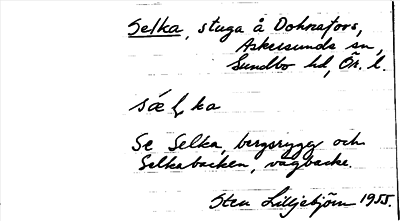 Selka, stuga å Dohnafors,
Askersunds sn,
Sundbo hd, Ör. l.
Se Selka, bergsrygg och
Selkabacken, vägbacke.
Sten Lilljebjörn 1955.